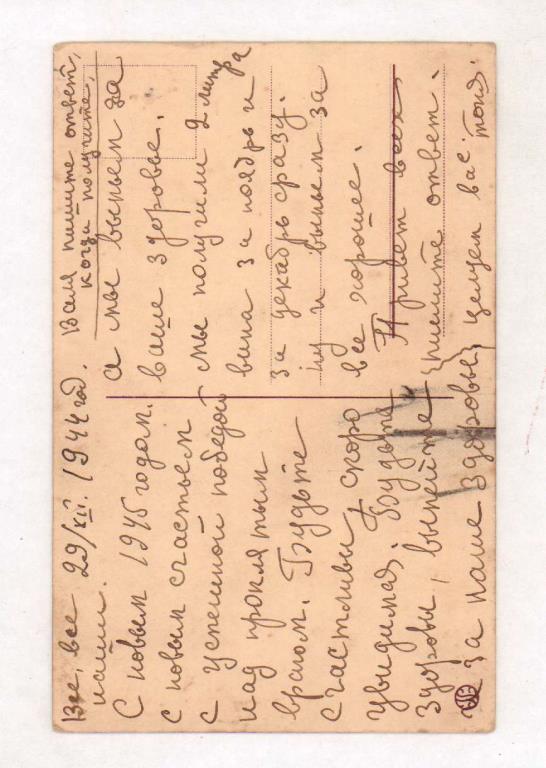 Все, все 29/XII. 1944 год.
наши.
С новым 1945 годам.
с новым счастьем
с успешной победой
над проклятым
врагом. Будьте
счастливы, скоро
увидимся. Будьте
здоровы, выпейте
за наше здоровье,
Валя пишите ответ,
когда получите,
а мы выпьем за
ваше здоровье.
Мы получили 2 литра
вина за ноябрь и
за декабрь сразу.
ну и выпьем за
все хорошее.
Привет всех
пишите ответ.
целуем вас